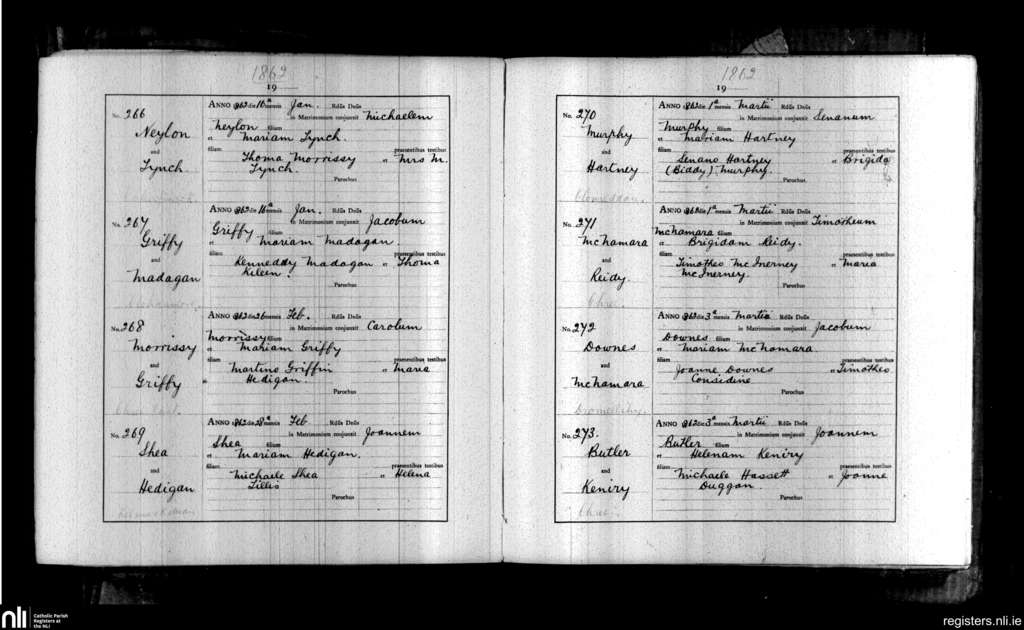 1862
19
No. 266
Neylon
and
Lynch.
ANNO 1862 die 16a mensis Jan. Rdūs Dnūs
in Matrimonium conjunxit Michaelem
Neylon filium
et Mariam Lynch.
filiam praesentibus testibus
Thoma Morrissy " Mrs M.
Lynch.
Parochus
No. 267
Griffy
and
Madagan
ANNO 1862 die 16a mensis Jan. Rdūs Dnūs
in Matrimonium conjunxit Jacobum
Griffy filium
" Mariam Madagan.
filiam praesentibus testibus
Kenneddy Madagan " Thoma
Kileen.
Parochus
No. 268
Morrissy
and
Griffy
ANNO 1862 die 26 mensis Feb. Rdūs Dnūs
in Matrimonium conjunxit Carolum
Morrissy filium
" Mariam Griffy
filiam praesentibus testibus
Martino Griffin " Maria
Hedigan.
Parochus
No. 269
Shea
and
Hedigan
ANNO 1862 die 28a mensis Feb Rdūs Dnūs
in Matrimonium conjunxit Joannem
Shea filium
" Mariam Hedigan.
filiam praesentibus testibus
Michaele Shea " Helena
Lillis
Parochus
1862
19
No. 270
Murphy
and
Hartney
ANNO 1862 die 1a mensis Martii Rdūs Dnūs
in Matrimonium conjunxit Senanum
Murphy filium
et Mariam Hartney
filiam praesentibus testibus
Senano Hartney " Brigida
(Biddy) Murphy.
Parochus.
No. 271
McNamara
and
Reidy.
Chree.
ANNO 1862 die 1a mensis Martii Rdūs Dnūs
in Matrimonium conjunxit Timotheum
McNamara filium
" Brigidam Reidy.
filiam praesentibus testibus
Timotheo McInerney " Maria
McInerney.
Parochus
No. 272
Downes
and
McNamara
ANNO 1862 die 3a mensis Martii Rdūs Dnūs
in Matrimonium conjunxit Jacobum
Downes filium
" Mariam McNamara.
filiam praesentibus testibus
Joanne Downes " Timotheo
Considine
Parochus
No. 273.
Butler
and
Keniry
Chree.
ANNO 1862 die 3a mensis Martii Rdūs Dnūs
in Matrimonium conjunxit Joannem
Butler filium
" Helenam Keniry
filiam praesentibus testibus
Michaele Hassett " Joanne
Duggan.
Parochus
nli
Catholic Parish
Registers at
the NLI
registers.nli.ie